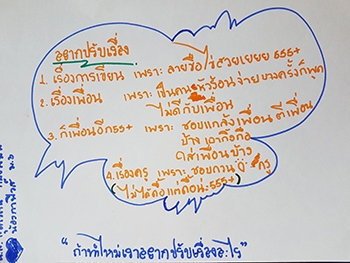 อยากปรับเรื่อง
1. เรื่องการเขียน เพราะ ลายมือไม่สวยเยยย 555+
2. เรื่องเพื่อน เพราะ เป็นคนหัวร้อนง่าย บางครั้งก็พูด
ไม่ดีกับเพื่อน
3. ก็เพื่อนอีก55+ เพราะ ชอบแกล้งเพื่อน ตีเพื่อน
บ้าง เอาถือถือ
ใส่เพื่อนบ้าง
4. เรื่องครู เพราะ ชอบกวน ครู
(ไม่ได้ดื้อแต่ดื้อนะ 555+)
"ถ้าปีใหม่เราอยากปรับเรื่องอะไร"